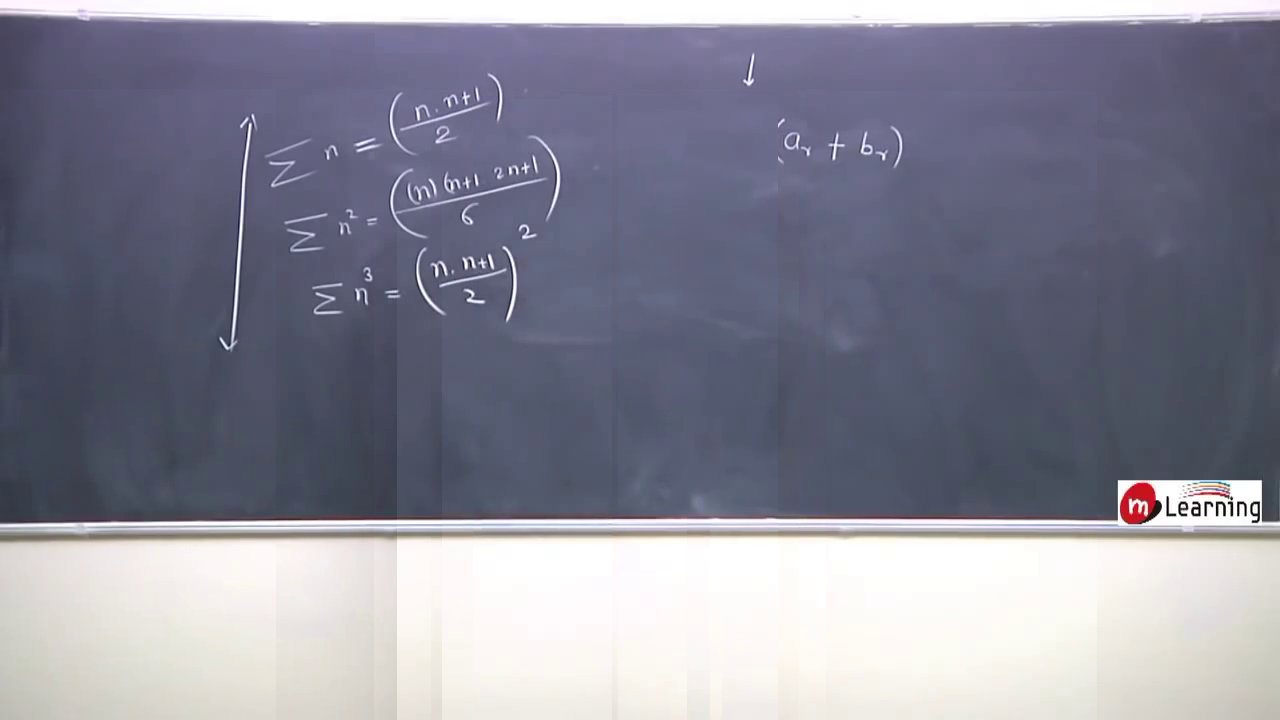 ∑ n = (n. n+1 / 2)
∑ n² = ((n) (n+1 2n+1 / 6)
∑ n³ = (n. n+1 / 2)²
(aᵣ + bᵣ)
m Learning